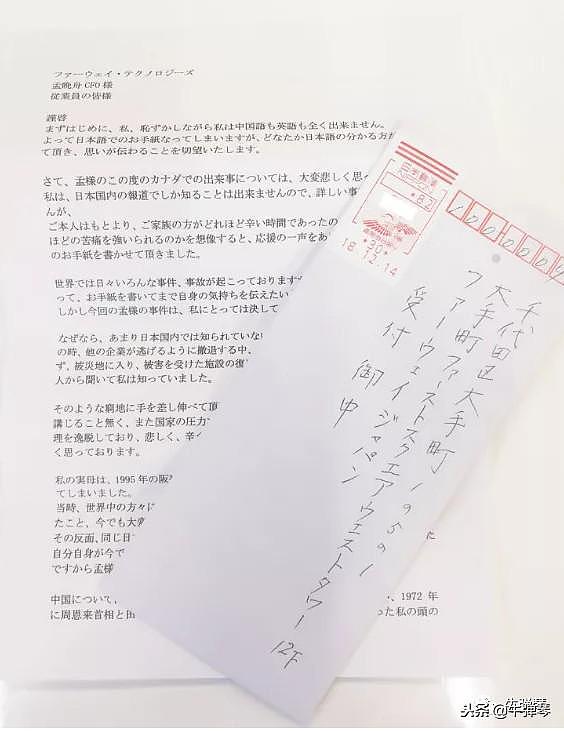 ファーウェイ・テクノロジーズ
孟晩舟 CFO 様
従業員の皆様
謹啓
まずはじめに、私、恥ずかしながら私は中国語も英語も全く出来ません。
よって日本語でのお手紙なってしまいますが、どなたか日本語の分かる方が
て頂き、思いが伝わることを切望いたします。
さて、孟様のこの度のカナダでの出来事については、大変悲しく思
私は、日本国内の報道でしか知ることは出来ませんので、詳しい事
んが、
ご本人はもとより、ご家族の方がどれほど辛い時間であったの
ほどの苦痛を強いられるのかを想像すると、応援の一声をあ
のお手紙を書かせて頂きました。
世界では日々いろんな事件、事故が起こっております
って、お手紙を書いてまで自身の気持ちを伝えたい
しかし今回の孟様の事件は、私にとっては決して
なぜなら、あまり日本国内では知られていな
の時、他の企業が逃げるように撤退する中、
ず、被災地に入り、被害を受けた施設の復
人から聞いて私は知っていました。
そのような窮地に手を差し伸べて頂
講じること無く、また国家の圧力
理を逸脱しており、悲しく、辛
く思っております。
私の実母は、1995 年の阪
てしまいました。
当時、世界中の方々に
たこと、今でも大
その反面、同じ日
自分自身が今で
ですから孟様
中国について、
、1972 年
に周恩来首相と
った私の頭の
日本郵便
82
18.12.14
1000004
千代田区大手町1-5-1
大手町ファーストスクエアウエストタワー12F
ファーウェイジャパン
受付 御中
头条@牛弹琴